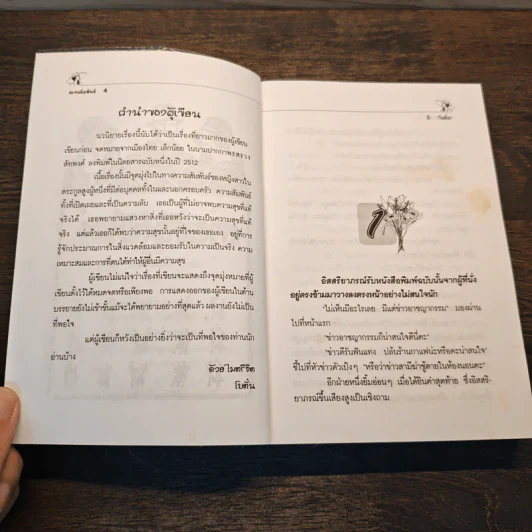 4
คำนำของผู้เขียน
นวนิยายเรื่องนี้นับได้ว่าเป็นเรื่องที่ยาวมากของผู้เขียน
เขียนก่อน จดหมายจากเมืองไทย เล็กน้อย ในนามปากกาพรสรวง
ลงพิมพ์ในนิตยสารฉบับหนึ่งในปี 2512
เนื้อเรื่องนั้นมีจุดมุ่งไปในทางความสัมพันธ์ของหญิงสาวใน
ตระกูลสูงผู้หนึ่งที่มีต่อบุคคลทั้งในและนอกครอบครัว ความสัมพันธ์
ทั้งที่เปิดเผยและที่เป็นความลับ เธอเป็นผู้ที่ไม่อาจพบความสุขที่แท้
จริงได้ เธอพยายามแสวงหาสิ่งที่เธอหวังว่าจะเป็นความสุขที่แท้
จริง แต่แล้วเธอก็ได้พบว่าความสุขนั้นอยู่ที่ใจของเธอเอง อยู่ที่การ
รู้จักประมาณการในสิ่งแวดล้อมและยอมรับในความเป็นจริง ความ
เหมาะสมและการที่ตนได้ทำให้ผู้อื่นมีความสุข
ผู้เขียนไม่แน่ใจว่าเรื่องที่เขียนจะแสดงถึงจุดมุ่งหมายที่ผู้
เขียนตั้งไว้ได้หมดจดหรือเพียงพอ การแสดงออกของผู้เขียนในด้าน
บรรยายยังไม่เข้าขั้นแม้จะได้พยายามอย่างที่สุดแล้ว ผลงานยังไม่เป็น
ที่พอใจ
แต่ผู้เขียนก็หวังเป็นอย่างยิ่งว่าจะเป็นที่พอใจของท่านนัก
อ่านบ้าง
ด้วยไมตรีจิต
โบตั๋น
5
๑
อิสตรียาภรณ์รับหนังสือพิมพ์ฉบับนั้นจากผู้ที่นั่ง
อยู่ตรงข้ามมาวางลงตรงหน้าอย่างไม่สนใจนัก
"ไม่เห็นมีอะไรเลย มีแต่ข่าวอาชญากรรม" มองผ่าน
ไปที่หน้าแรก
"ข่าวอาชญากรรมก็น่าสนใจดีนี่คะ"
"ข่าวตีรันฟันแทง ปล้นร้านกาแฟน่ะหรือคะน่าสนใจ"
ชี้ไปที่หัวข่าวตัวเป้งๆ "หรือว่าข่าวสามีฆ่าชู้ตายในห้องนอนคะ"
อีกฝ่ายหนึ่งยิ้มอ่อนๆ เมื่อได้ยินคำสุดท้าย ซึ่งอิสตรี-
ยาภรณ์ขึ้นเสียงสูงเป็นเชิงถาม